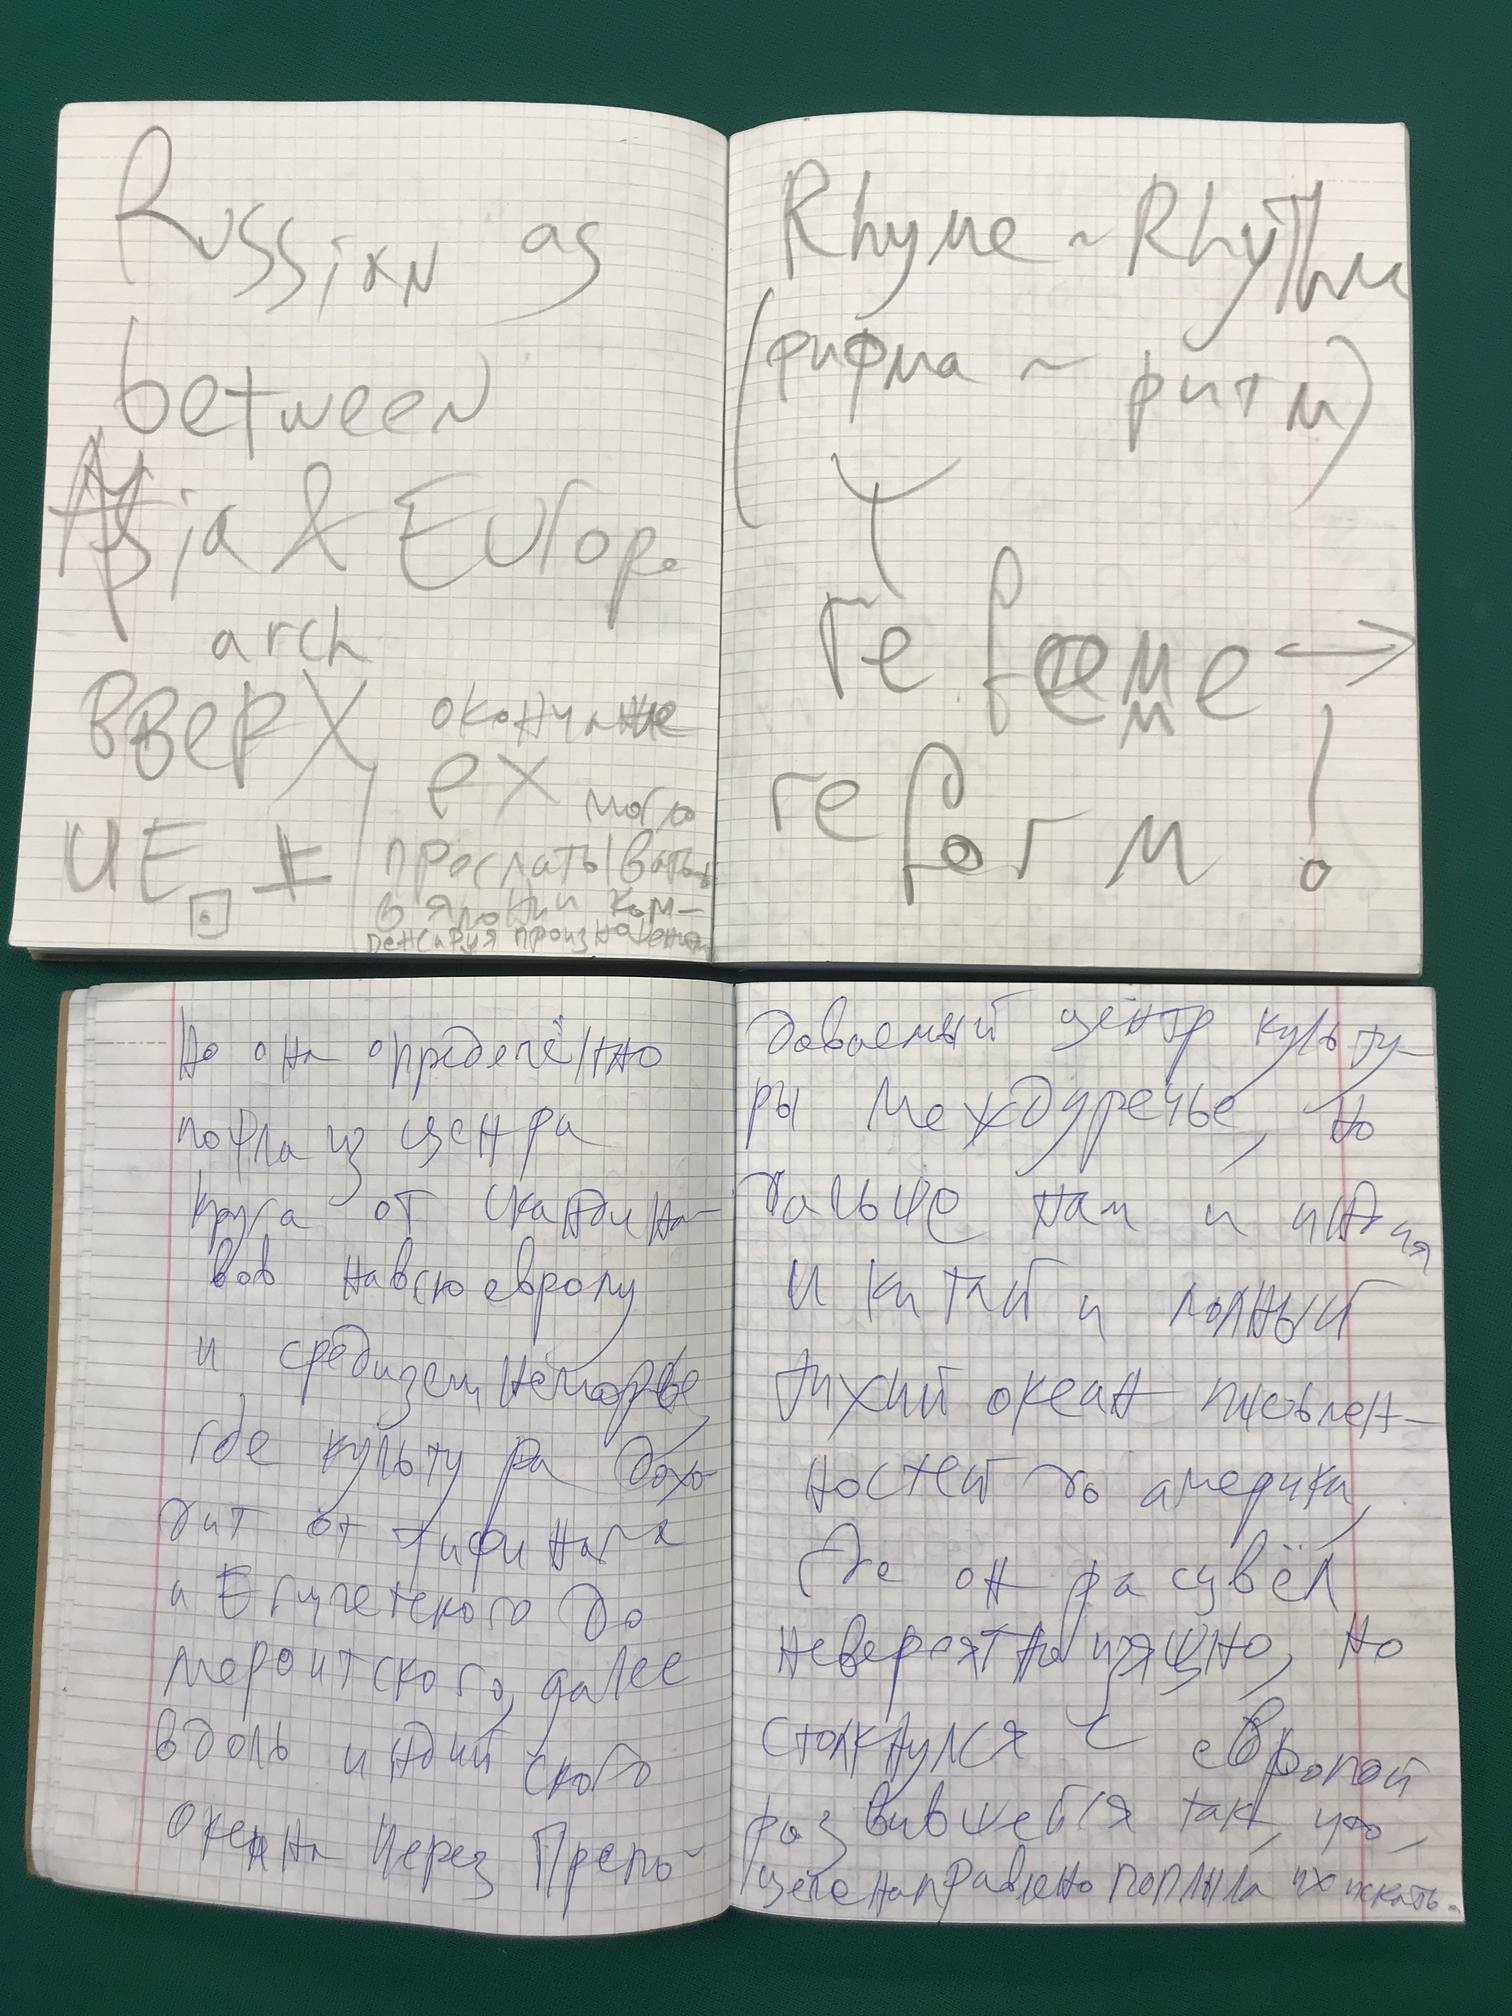 Russian as
between
Asia & Europe
arch
вверх
окончание
ех могло
UE
в японии ком-
пенсируя
Rhyme ~ Rhythm
(рифма ~ ритм)
re feme →
reform !
Но она определённо
пошла из центра
круга от сканди на-
вов на всю европу
и средиземноморье,
где культура дохо
дит от тифинага
и Египетского до
мероитского, далее
вдоль индийского
океана через Препо-
доваемый центр культу-
ры междуречье, но
дальше нам и индия
и китай и полный
тихий океан письмен-
ностей до америки,
где он расцвёл
невероятно изящно, но
столкнулся с европой
развившейся так, что
целенаправлено поплыла их искать.